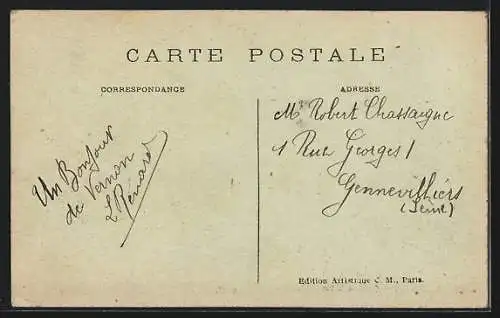 CARTE POSTALE
CORRESPONDANCE
ADRESSE
Mr Robert Chassaigne
1 Rue Georges 1
Gennevilliers
(Seine)
Un Bonjour
de Vernon
L Renard
Edition Artistique C. M., Paris.